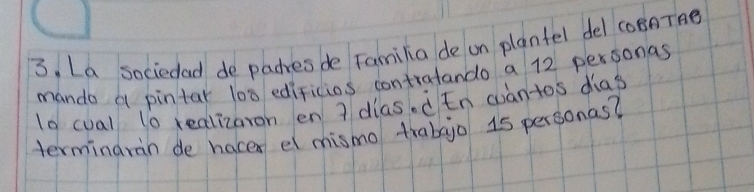 3. La Sociedad de padres de Familia de un plantel del COBATAB
mando a pintar los edificios contratando a 12 personas
lo cual lo realizaron en 7 días. ¿En cuántos días
terminarán de hacer el mismo trabajo 15 personas?